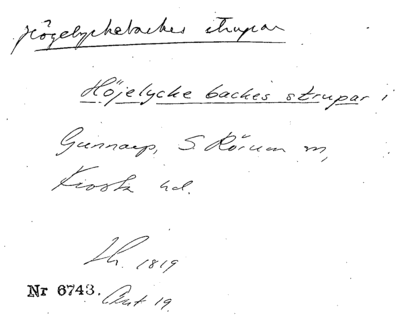 Högelyckebackes strupar
Höjelycke backes strupar i
Gunnarp, S Rörum sn,
Frosta hd.
Lh. 1819
Nr 6743. Akt 19.